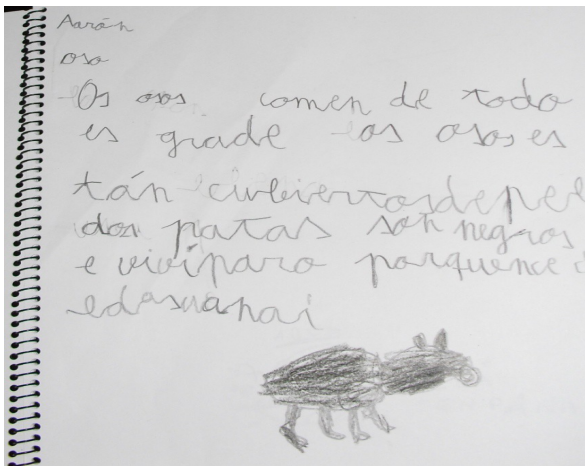 Aarón
oso
Os osos comen de todo
es grade los osos es
tán cubiertosdepel
dos patas son negros
e viviparo porquence